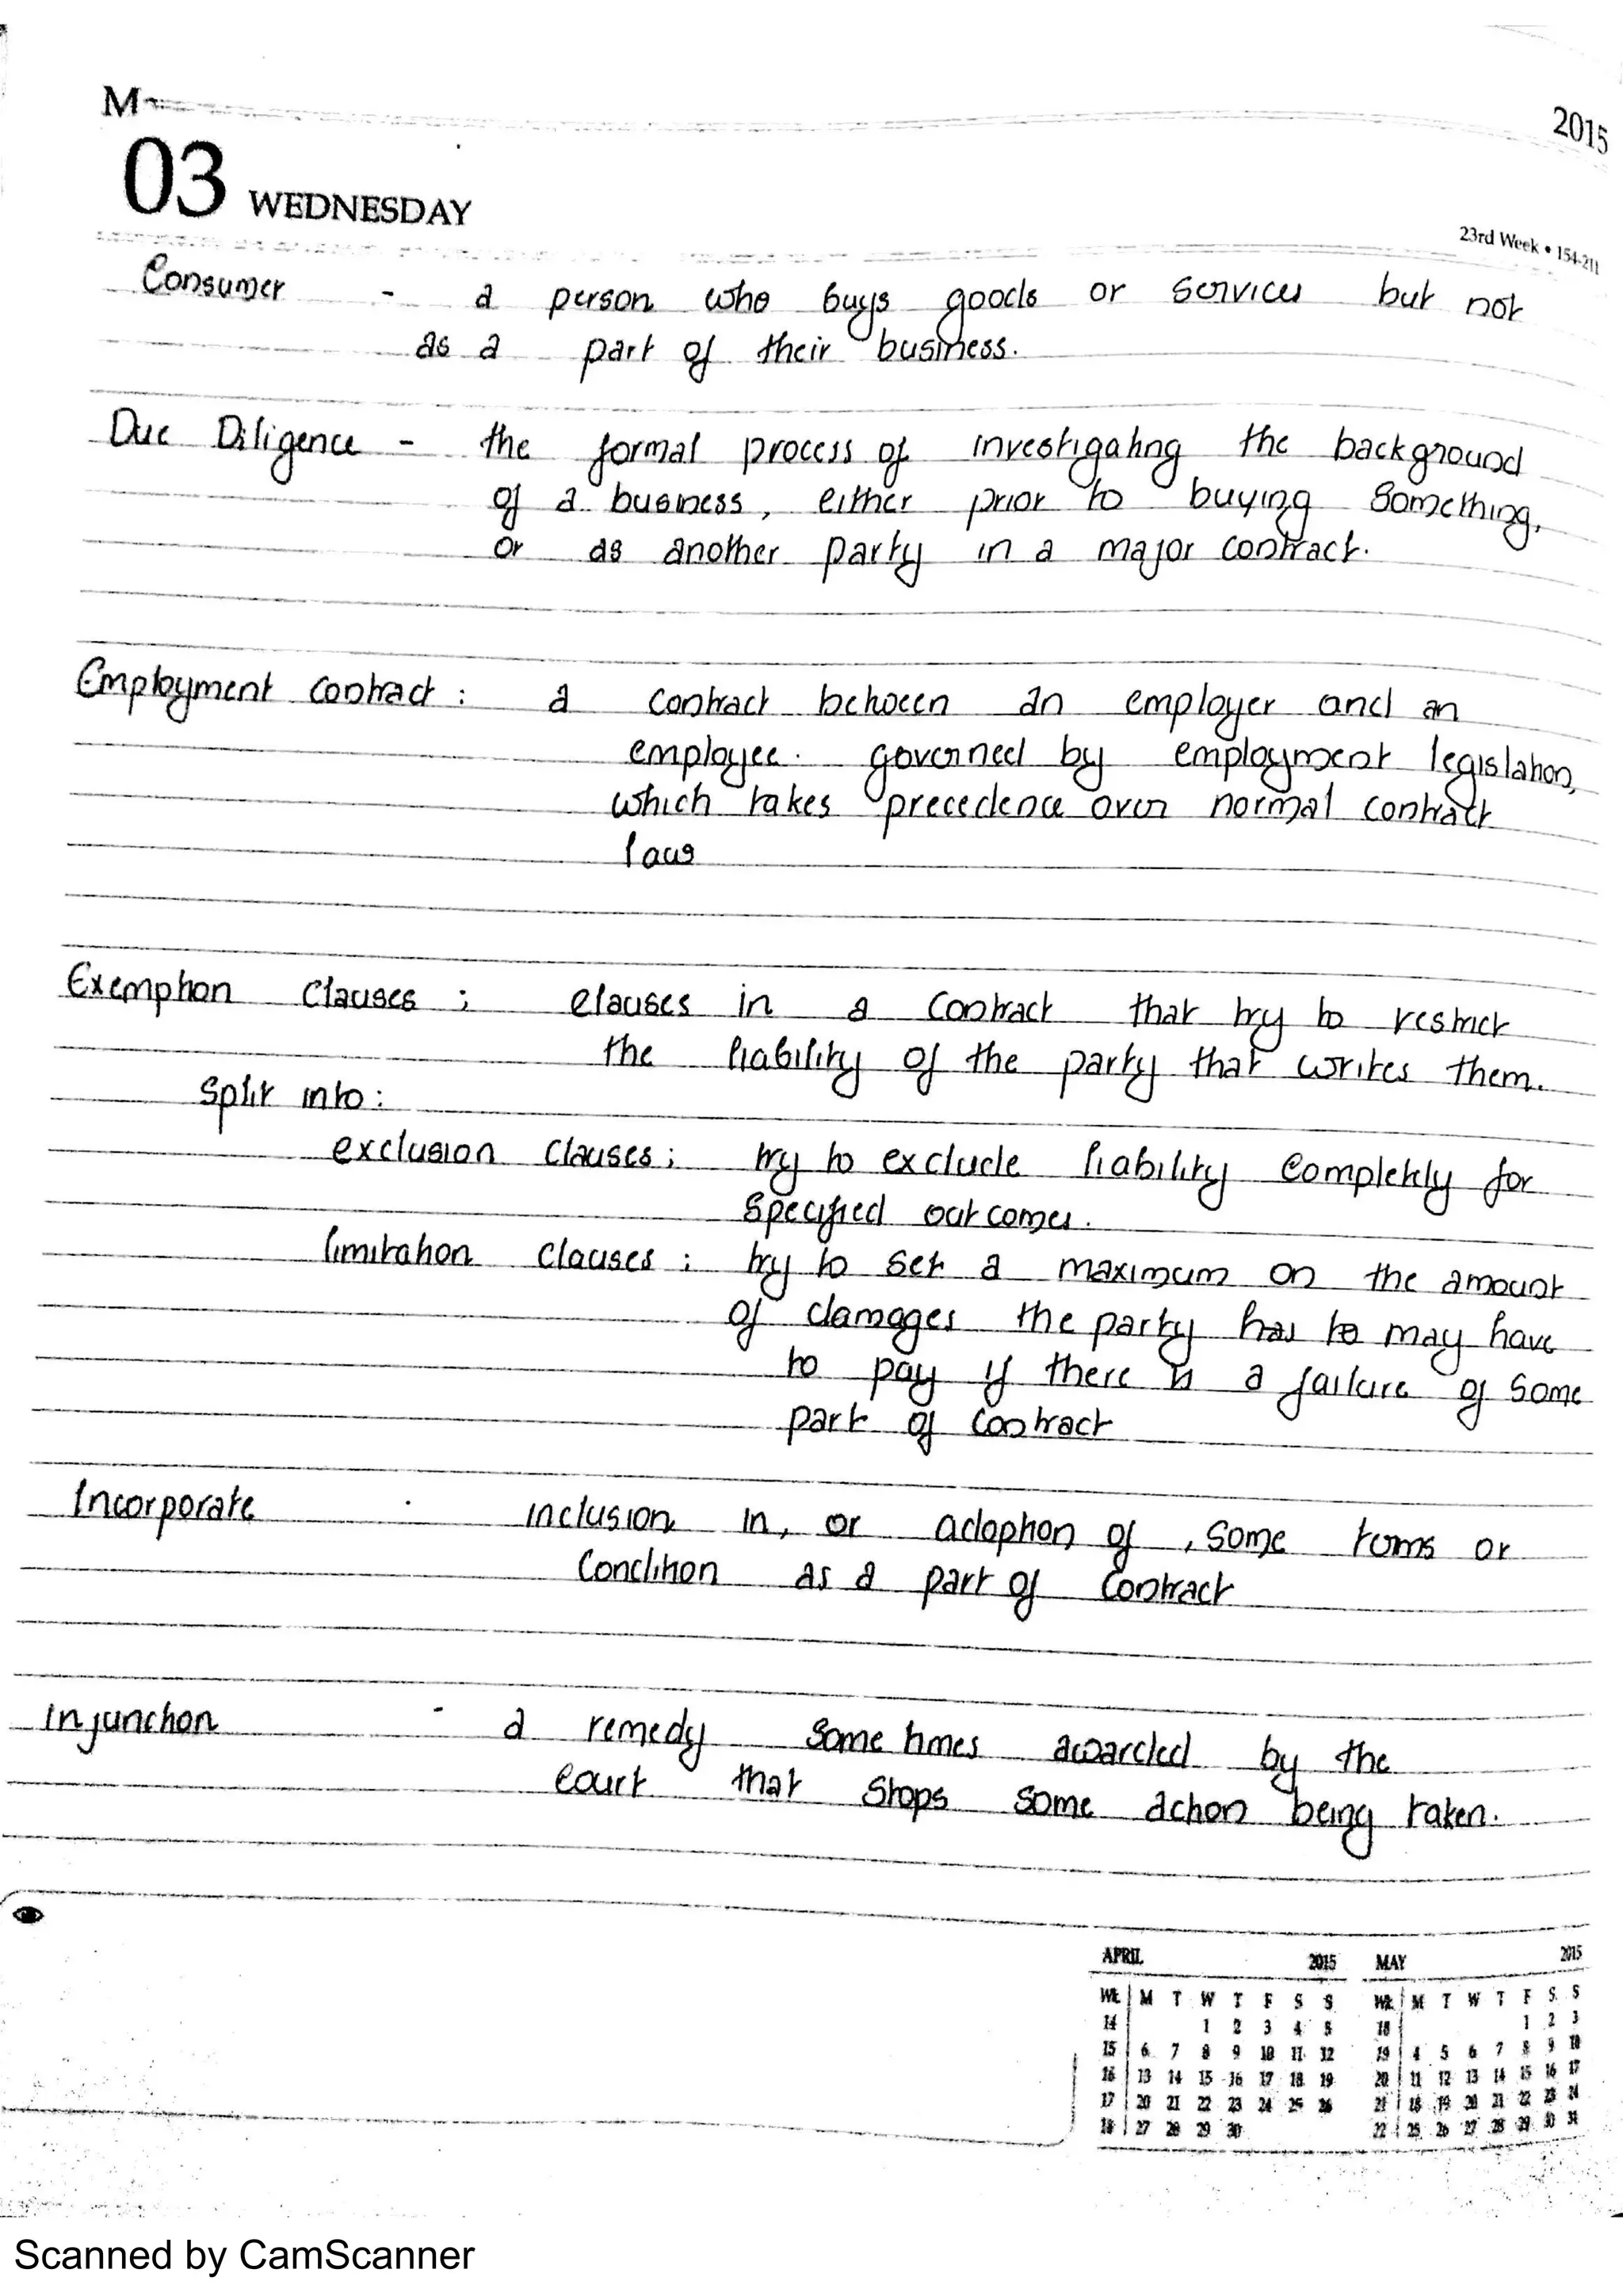 2015
03 WEDNESDAY
23rd Week • 154-211
Consumer - a person who buys goods or services but not
as a part of their business.
Due Diligence - the formal process of investigating the background
of a business, either prior to buying something,
or as another party in a major contract.
Employment contract : a contract between an employer and an
employee. governed by employment legislation,
which takes precedence over normal contract
laws
Exemption Clauses ; clauses in a contract that try to restrict
the liability of the party that writes them.
Split into :
exclusion clauses ; try to exclude liability completely for
specified outcomes.
limitation clauses : try to set a maximum on the amount
of damages the party has to may have
to pay if there is a failure of some
part of contract
Incorporate : inclusion in, or adoption of, some terms or
Condition as a part of Contract
injunction - a remedy some times awarded by the
court that stops some action being taken.
APRIL 2015 MAY 2015
Wk M T W T F S S Wk M T W T F S S
14 1 2 3 4 5 18 1 2 3
15 6 7 8 9 10 11 12 19 4 5 6 7 8 9 10
16 13 14 15 16 17 18 19 20 11 12 13 14 15 16 17
17 20 21 22 23 24 25 26 21 18 19 20 21 22 23 24
18 27 28 29 30 22 25 26 27 28 29 30 31
Scanned by CamScanner